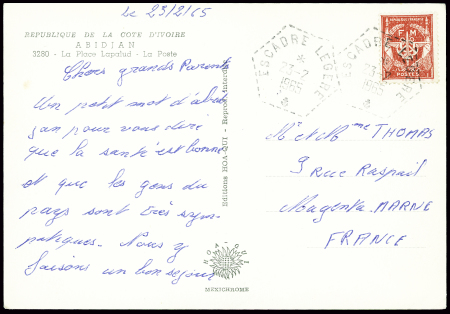 le 23/2/65
REPUBLIQUE DE LA COTE D'IVOIRE
ABIDJAN
3280 - La Place Lapalud - La Poste
Chers grands Parents
Un petit mot d'abid
jan pour vous dire
que la santé est bonne
et que les gens du
pays sont très sym-
pathiques. Nous y
faisons un bon séjour
Editions HOA-QUI - Reproduction
HOA-QUI
MEXICHROME
ESCADRE LÉGÈRE
23-2
1965
ESCADRE LÉGÈRE
23-2
1965
F M
POSTES
Mr et Mme THOMAS
9 rue Raspail
Magenta. MARNE
FRANCE